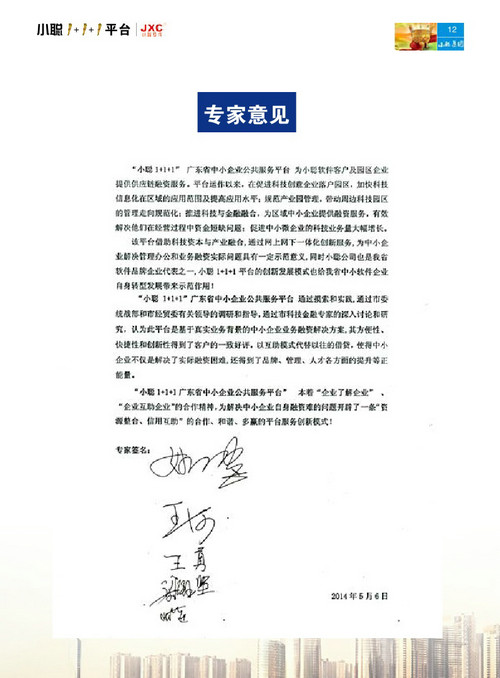 小聪 1+1+1 平台 JXC
12
专家意见
“小聪 1+1+1” 广东省中小企业公共服务平台 为小聪软件客户及园区企业
提供供应链融资服务。平台运作以来，在促进科技创意企业落户园区，加快科技
信息化在区域的应用范围及提高应用水平；规范产业园管理，带动周边科技园区
的管理走向规范化；推进科技与金融融合，为区域中小企业提供融资服务，有效
解决他们在经营过程中资金短缺问题；促进中小微企业的科技业务量大幅增长。
该平台借助科技资本与产业融合，通过网上网下一体化创新服务，为中小企
业解决管理办公和业务融资实际问题具有一定示范意义，同时小聪公司也是我省
软件品牌企业代表之一，小聪 1+1+1 平台的创新发展模式也给我省中小软件企业
自身转型发展带来示范作用！
“小聪 1+1+1”广东省中小企业公共服务平台 通过摸索和实践，通过市委
统战部和市经贸委有关领导的调研和指导，通过市科技金融专家的深入讨论和研
究，认为此平台是基于真实业务背景的中小企业业务融资解决方案，其方便性、
快捷性和创新性得到了客户的一致好评，以互助模式代替以往的借贷，使得中小
企业不仅是解决了实际融资困难，还得到了品牌、管理、人才各方面的提升等正
能量。
“小聪 1+1+1 广东省中小企业公共服务平台” 本着“企业了解企业”、
“企业互助企业”的合作精神，为解决中小企业自身融资难的问题开辟了一条“资
源整合、信用互助”的合作、和谐、多赢的平台服务创新模式！
专家签名：
王勇
2014 年 5 月 6 日